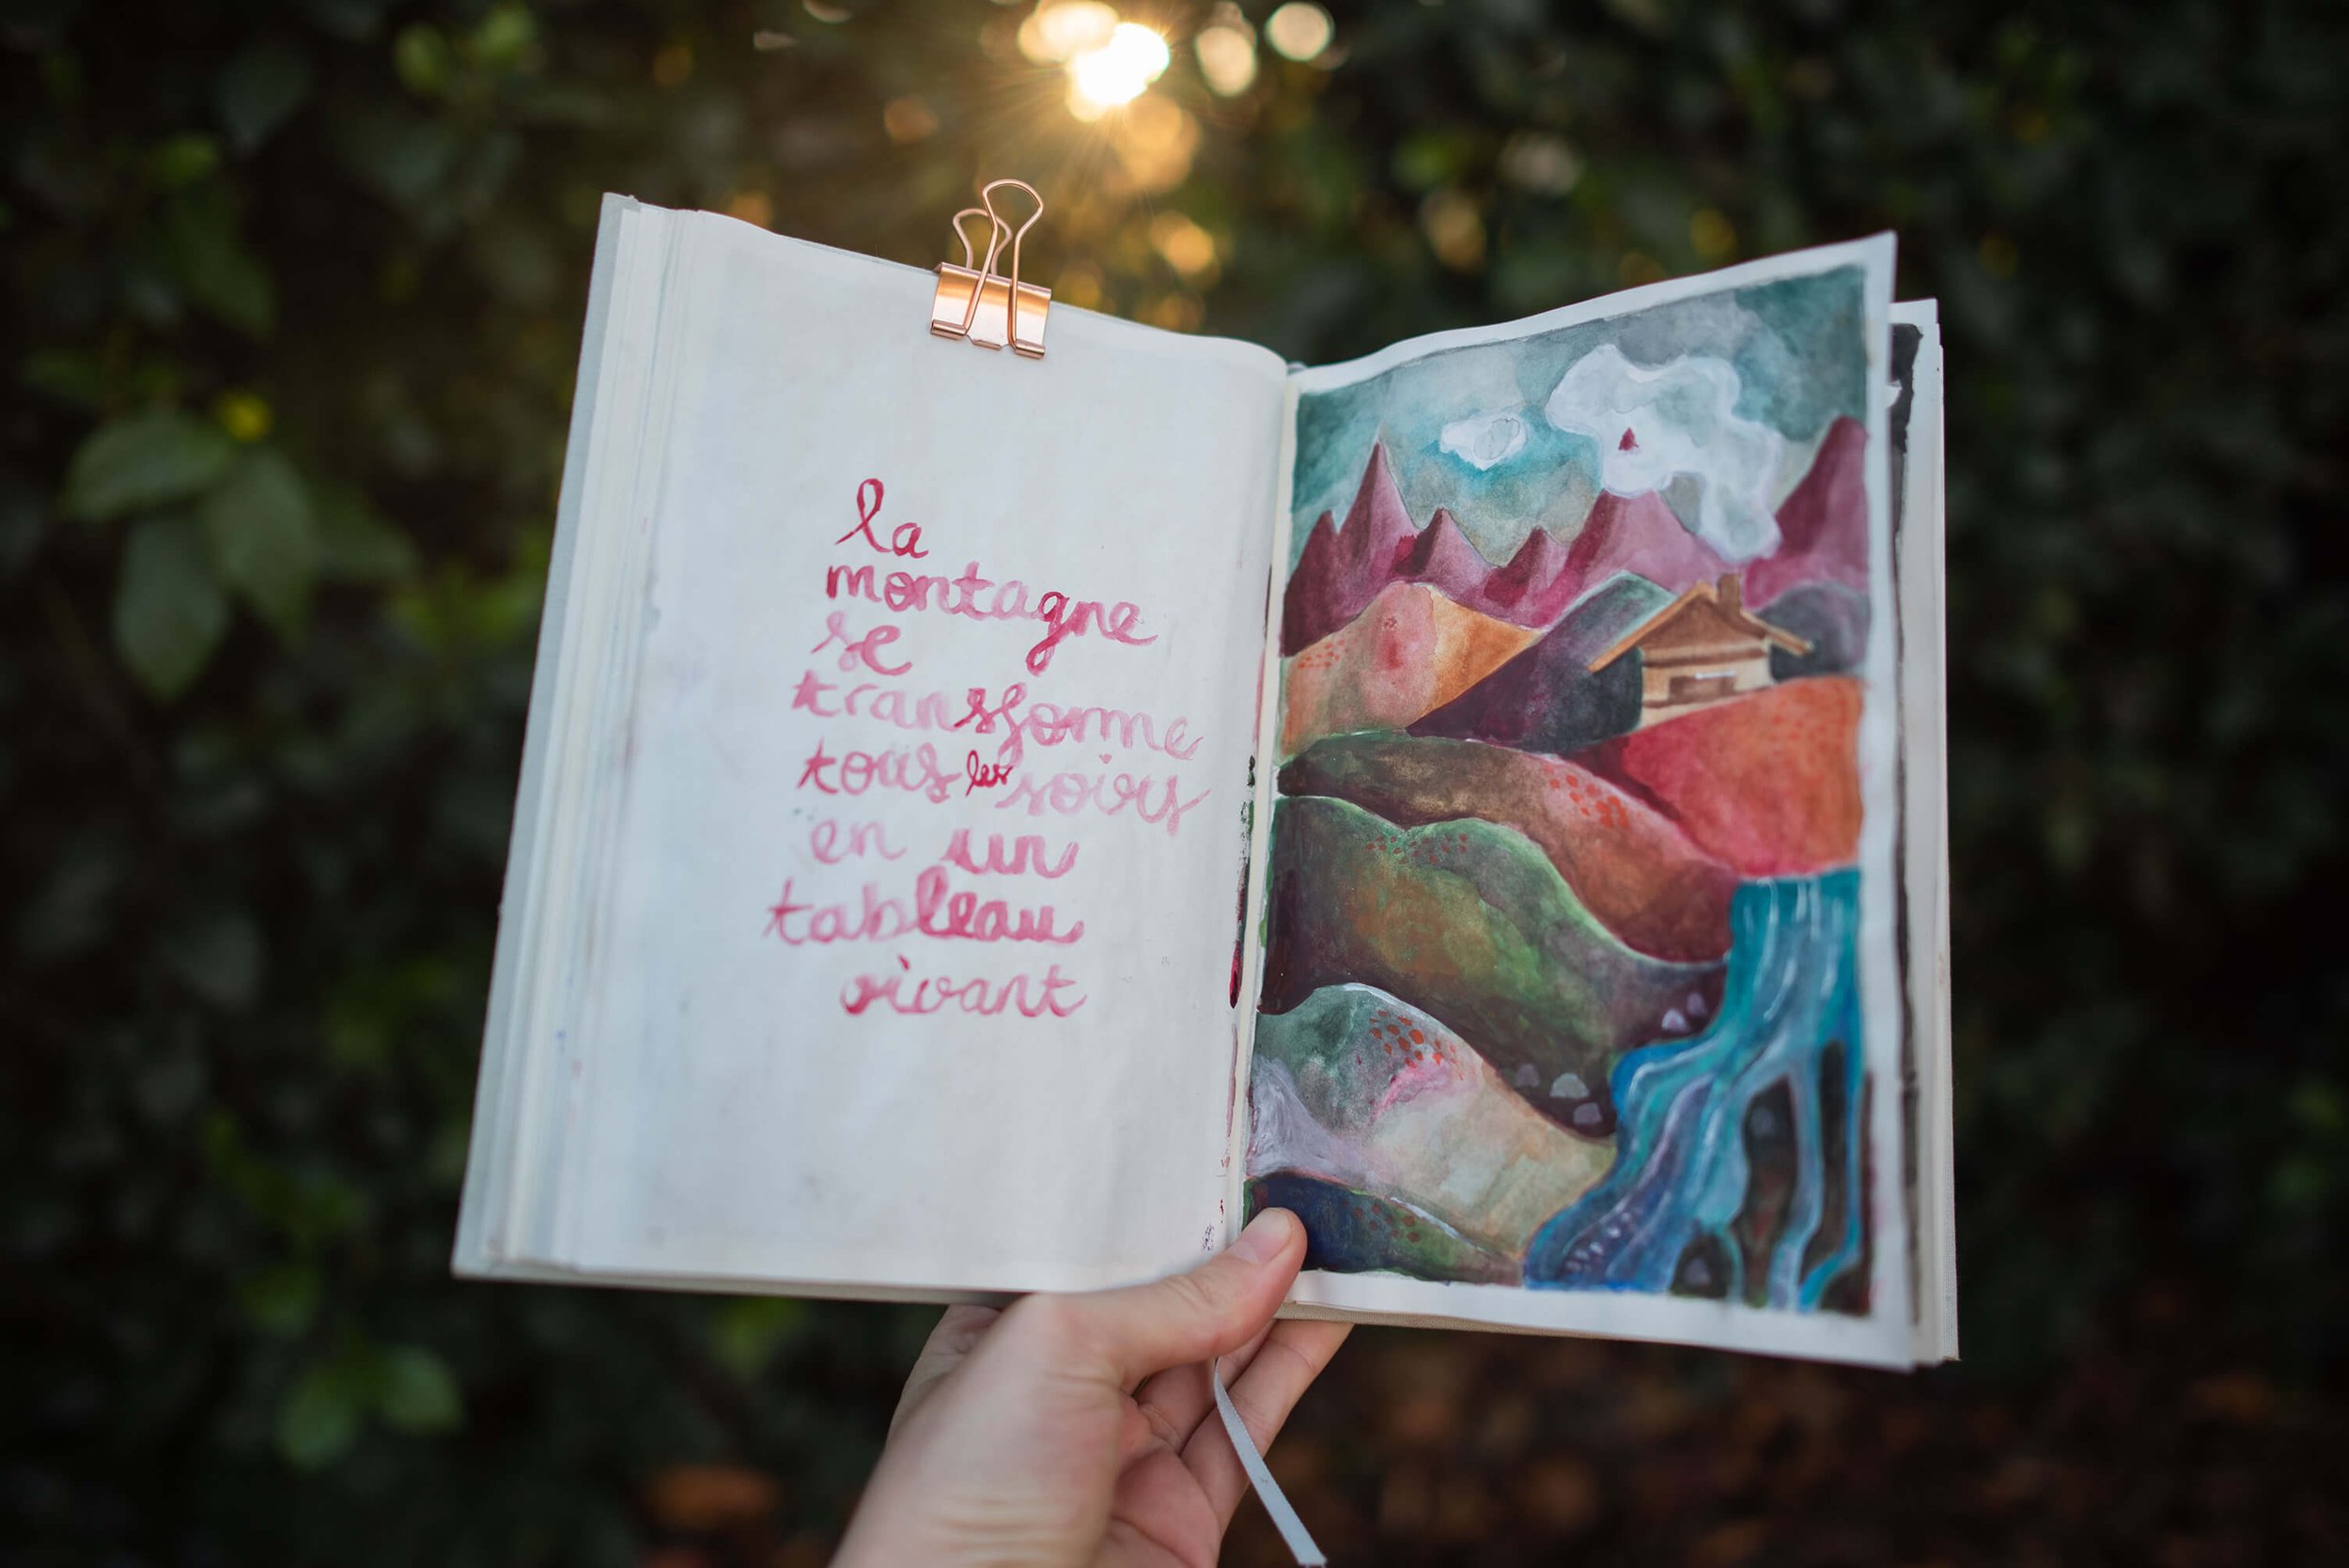 la
montagne
se
transforme
tous les soirs
en un
tableau
vivant